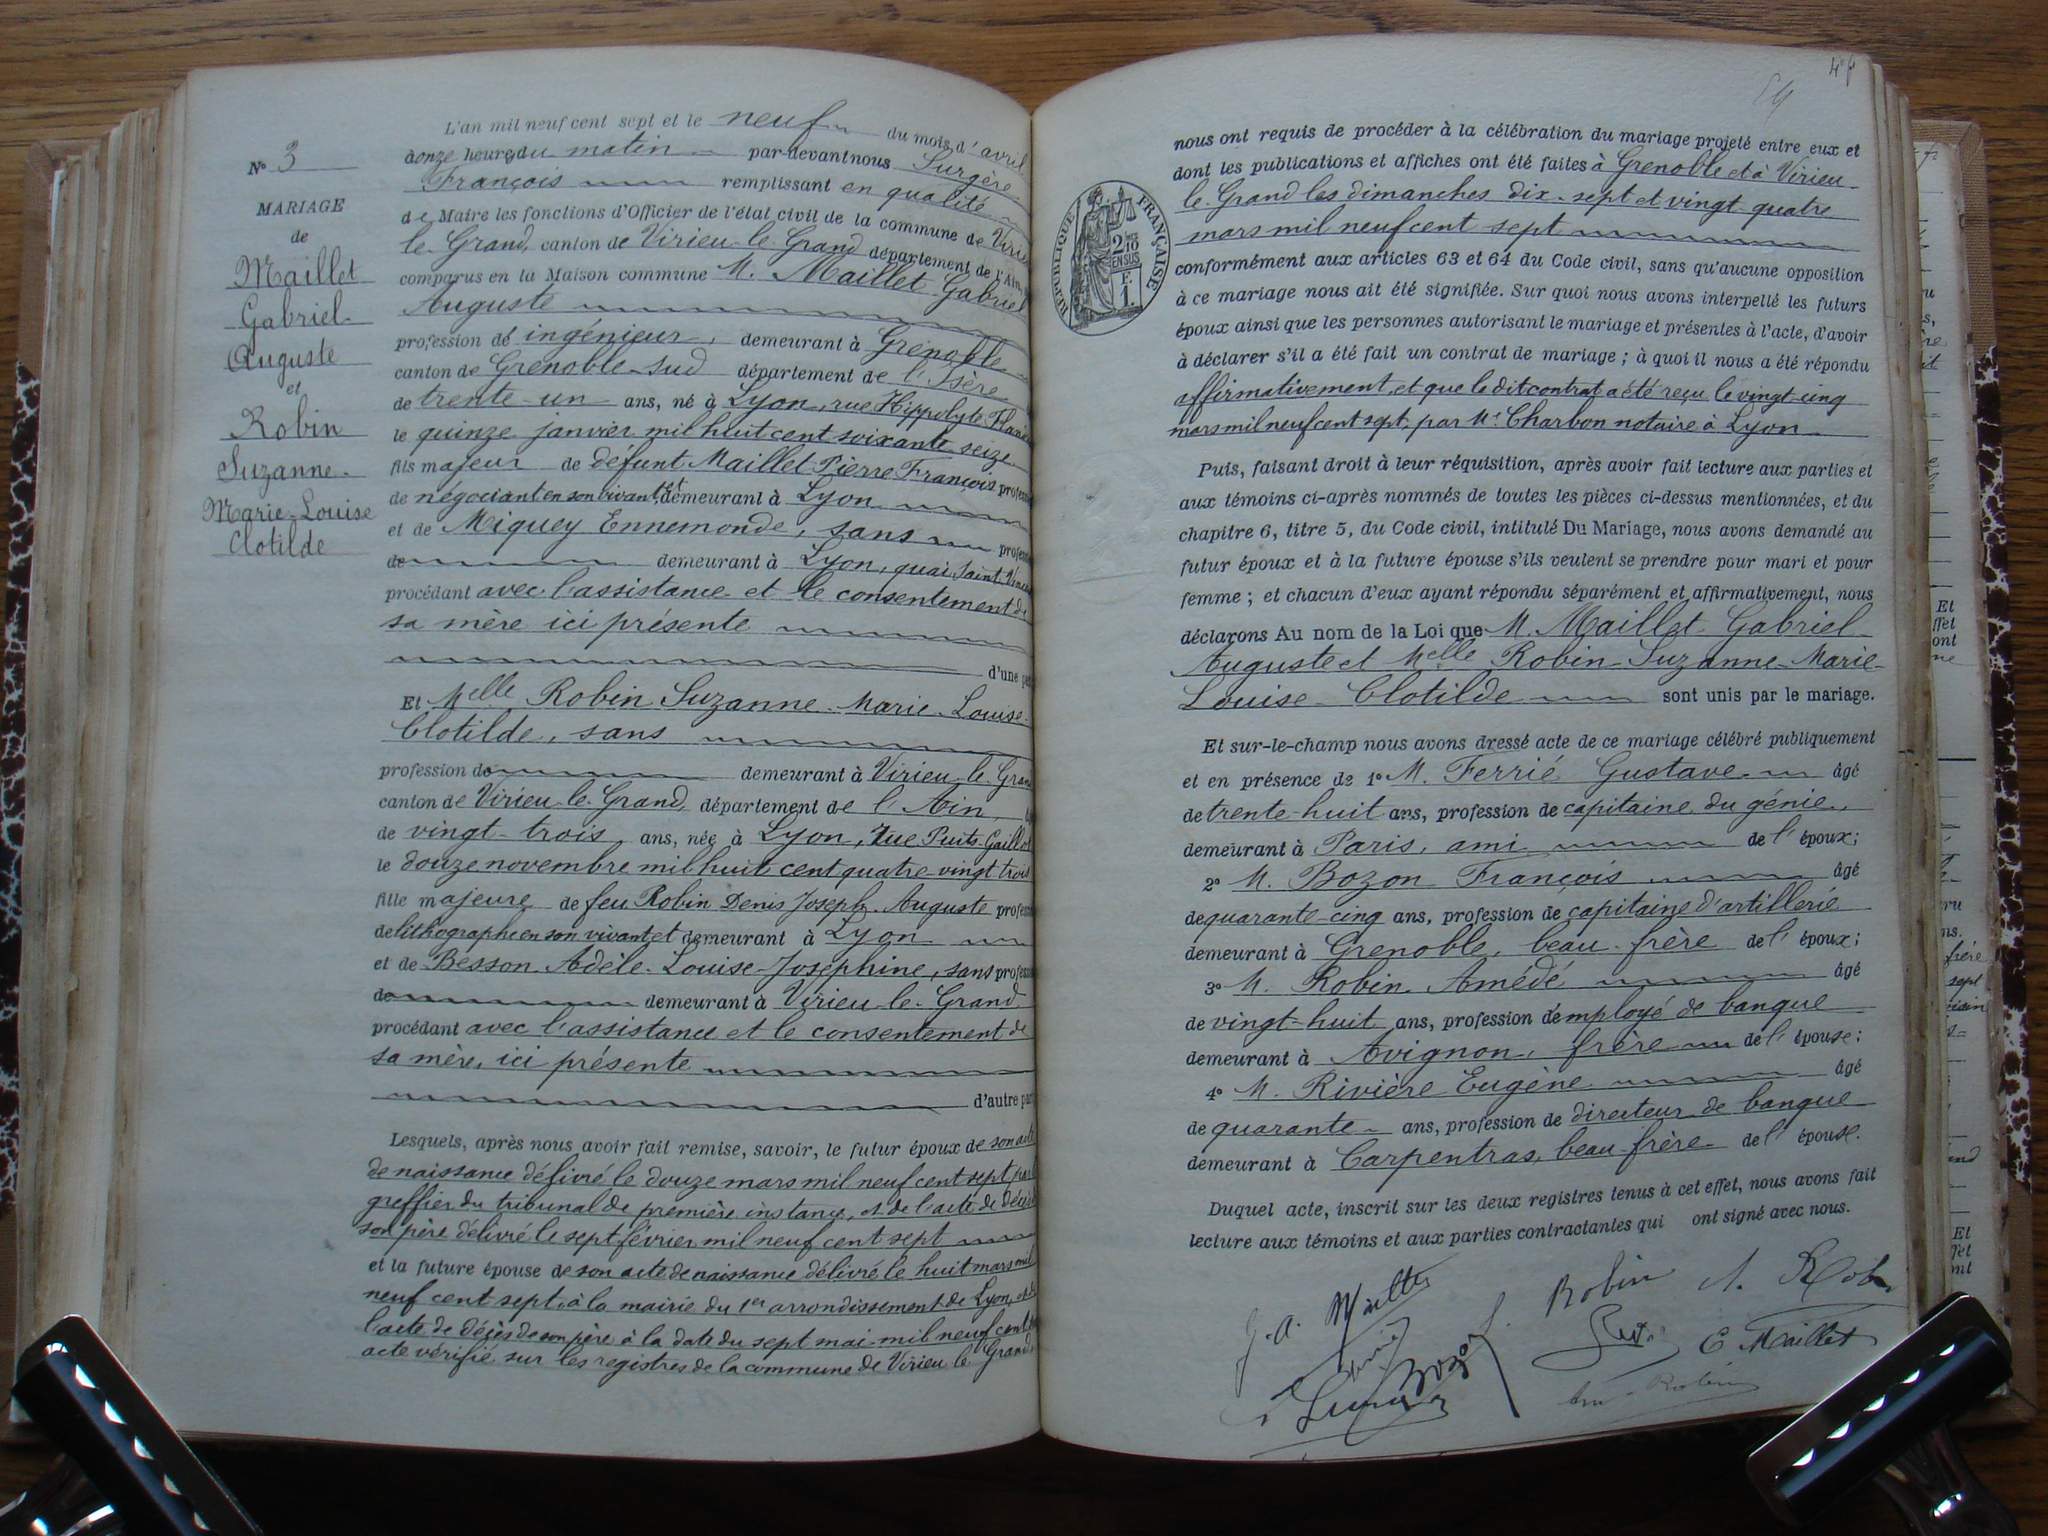 L'an mil neuf cent sept et le neuf du mois d'avril
à onze heures du matin par-devant nous Surgère
François remplissant en qualité
de Maire les fonctions d'Officier de l'état civil de la commune de Virieu
le-Grand, canton de Virieu-le-Grand département de l'Ain,
comparus en la Maison commune M. Maillet Gabriel
Auguste
profession de ingénieur, demeurant à Grenoble
canton de Grenoble-sud département de l'Isère
de trente-un ans, né à Lyon, rue Hippolyte
le quinze janvier mil huit cent soixante seize
fils majeur de défunt Maillet Pierre François
de négociant en son vivant, et demeurant à Lyon
et de Miquey Ennemonde, sans
de demeurant à Lyon, quai Saint
procédant avec l'assistance et le consentement de
sa mère ici présente
d'une
Et Melle Robin Suzanne-Marie-Louise-
Clotilde, sans
profession de demeurant à Virieu-le-Grand
canton de Virieu-le-Grand, département de l'Ain,
de vingt-trois ans, née à Lyon, rue Puits-Gaillot
le douze novembre mil huit cent quatre-vingt trois
fille majeure de feu Robin Denis Joseph-Auguste
de lithographe en son vivant et demeurant à Lyon
et de Besson Adèle-Louise-Joséphine, sans
de demeurant à Virieu-le-Grand
procédant avec l'assistance et le consentement de
sa mère, ici présente
d'autre part
Lesquels, après nous avoir fait remise, savoir, le futur époux de son acte
de naissance délivré le douze mars mil neuf cent sept par le
greffier du tribunal de première instance, et de l'acte de décès de
son père délivré le sept février mil neuf cent sept
et la future épouse de son acte de naissance délivré le huit mars mil
neuf cent sept à la mairie du 1er arrondissement de Lyon, et de
l'acte de décès de son père à la date du sept mai mil neuf cent
acte vérifié sur les registres de la commune de Virieu le Grand
N° 3
MARIAGE
de
Maillet
Gabriel-
Auguste
et
Robin
Suzanne-
Marie-Louise
Clotilde
nous ont requis de procéder à la célébration du mariage projeté entre eux et
dont les publications et affiches ont été faites à Grenoble et à Virieu-
le-Grand les dimanches dix-sept et vingt-quatre
mars mil neuf cent sept
conformément aux articles 63 et 64 du Code civil, sans qu'aucune opposition
à ce mariage nous ait été signifiée. Sur quoi nous avons interpellé les futurs
époux ainsi que les personnes autorisant le mariage et présentes à l'acte, d'avoir
à déclarer s'il a été fait un contrat de mariage ; à quoi il nous a été répondu
affirmativement, et que le dit contrat a été reçu le vingt-cinq
mars mil neuf cent sept, par Me Charbon notaire à Lyon
Puis, faisant droit à leur réquisition, après avoir fait lecture aux parties et
aux témoins ci-après nommés de toutes les pièces ci-dessus mentionnées, et du
chapitre 6, titre 5, du Code civil, intitulé Du Mariage, nous avons demandé au
futur époux et à la future épouse s'ils veulent se prendre pour mari et pour
femme ; et chacun d'eux ayant répondu séparément et affirmativement, nous
déclarons Au nom de la Loi que M. Maillet Gabriel
Auguste et Melle Robin Suzanne-Marie-
Louise-Clotilde sont unis par le mariage.
Et sur-le-champ nous avons dressé acte de ce mariage célébré publiquement
et en présence de 1° M. Ferrié Gustave âgé
de trente-huit ans, profession de capitaine du génie,
demeurant à Paris, ami de l'époux ;
2° M. Bozon François âgé
de quarante-cinq ans, profession de capitaine d'artillerie
demeurant à Grenoble, beau-frère de l'époux ;
3° M. Robin Amédé âgé
de vingt-huit ans, profession d'employé de banque
demeurant à Avignon, frère de l'épouse ;
4° M. Rivière Eugène âgé
de quarante ans, profession de directeur de banque
demeurant à Carpentras, beau-frère de l'épouse.
Duquel acte, inscrit sur les deux registres tenus à cet effet, nous avons fait
lecture aux témoins et aux parties contractantes qui ont signé avec nous.
G. A. Maillet
S. Robin
A. Robin
Bozon
E Maillet
Am. Robin
RÉPUBLIQUE FRANÇAISE
2/10
EN SUS
F.
1.